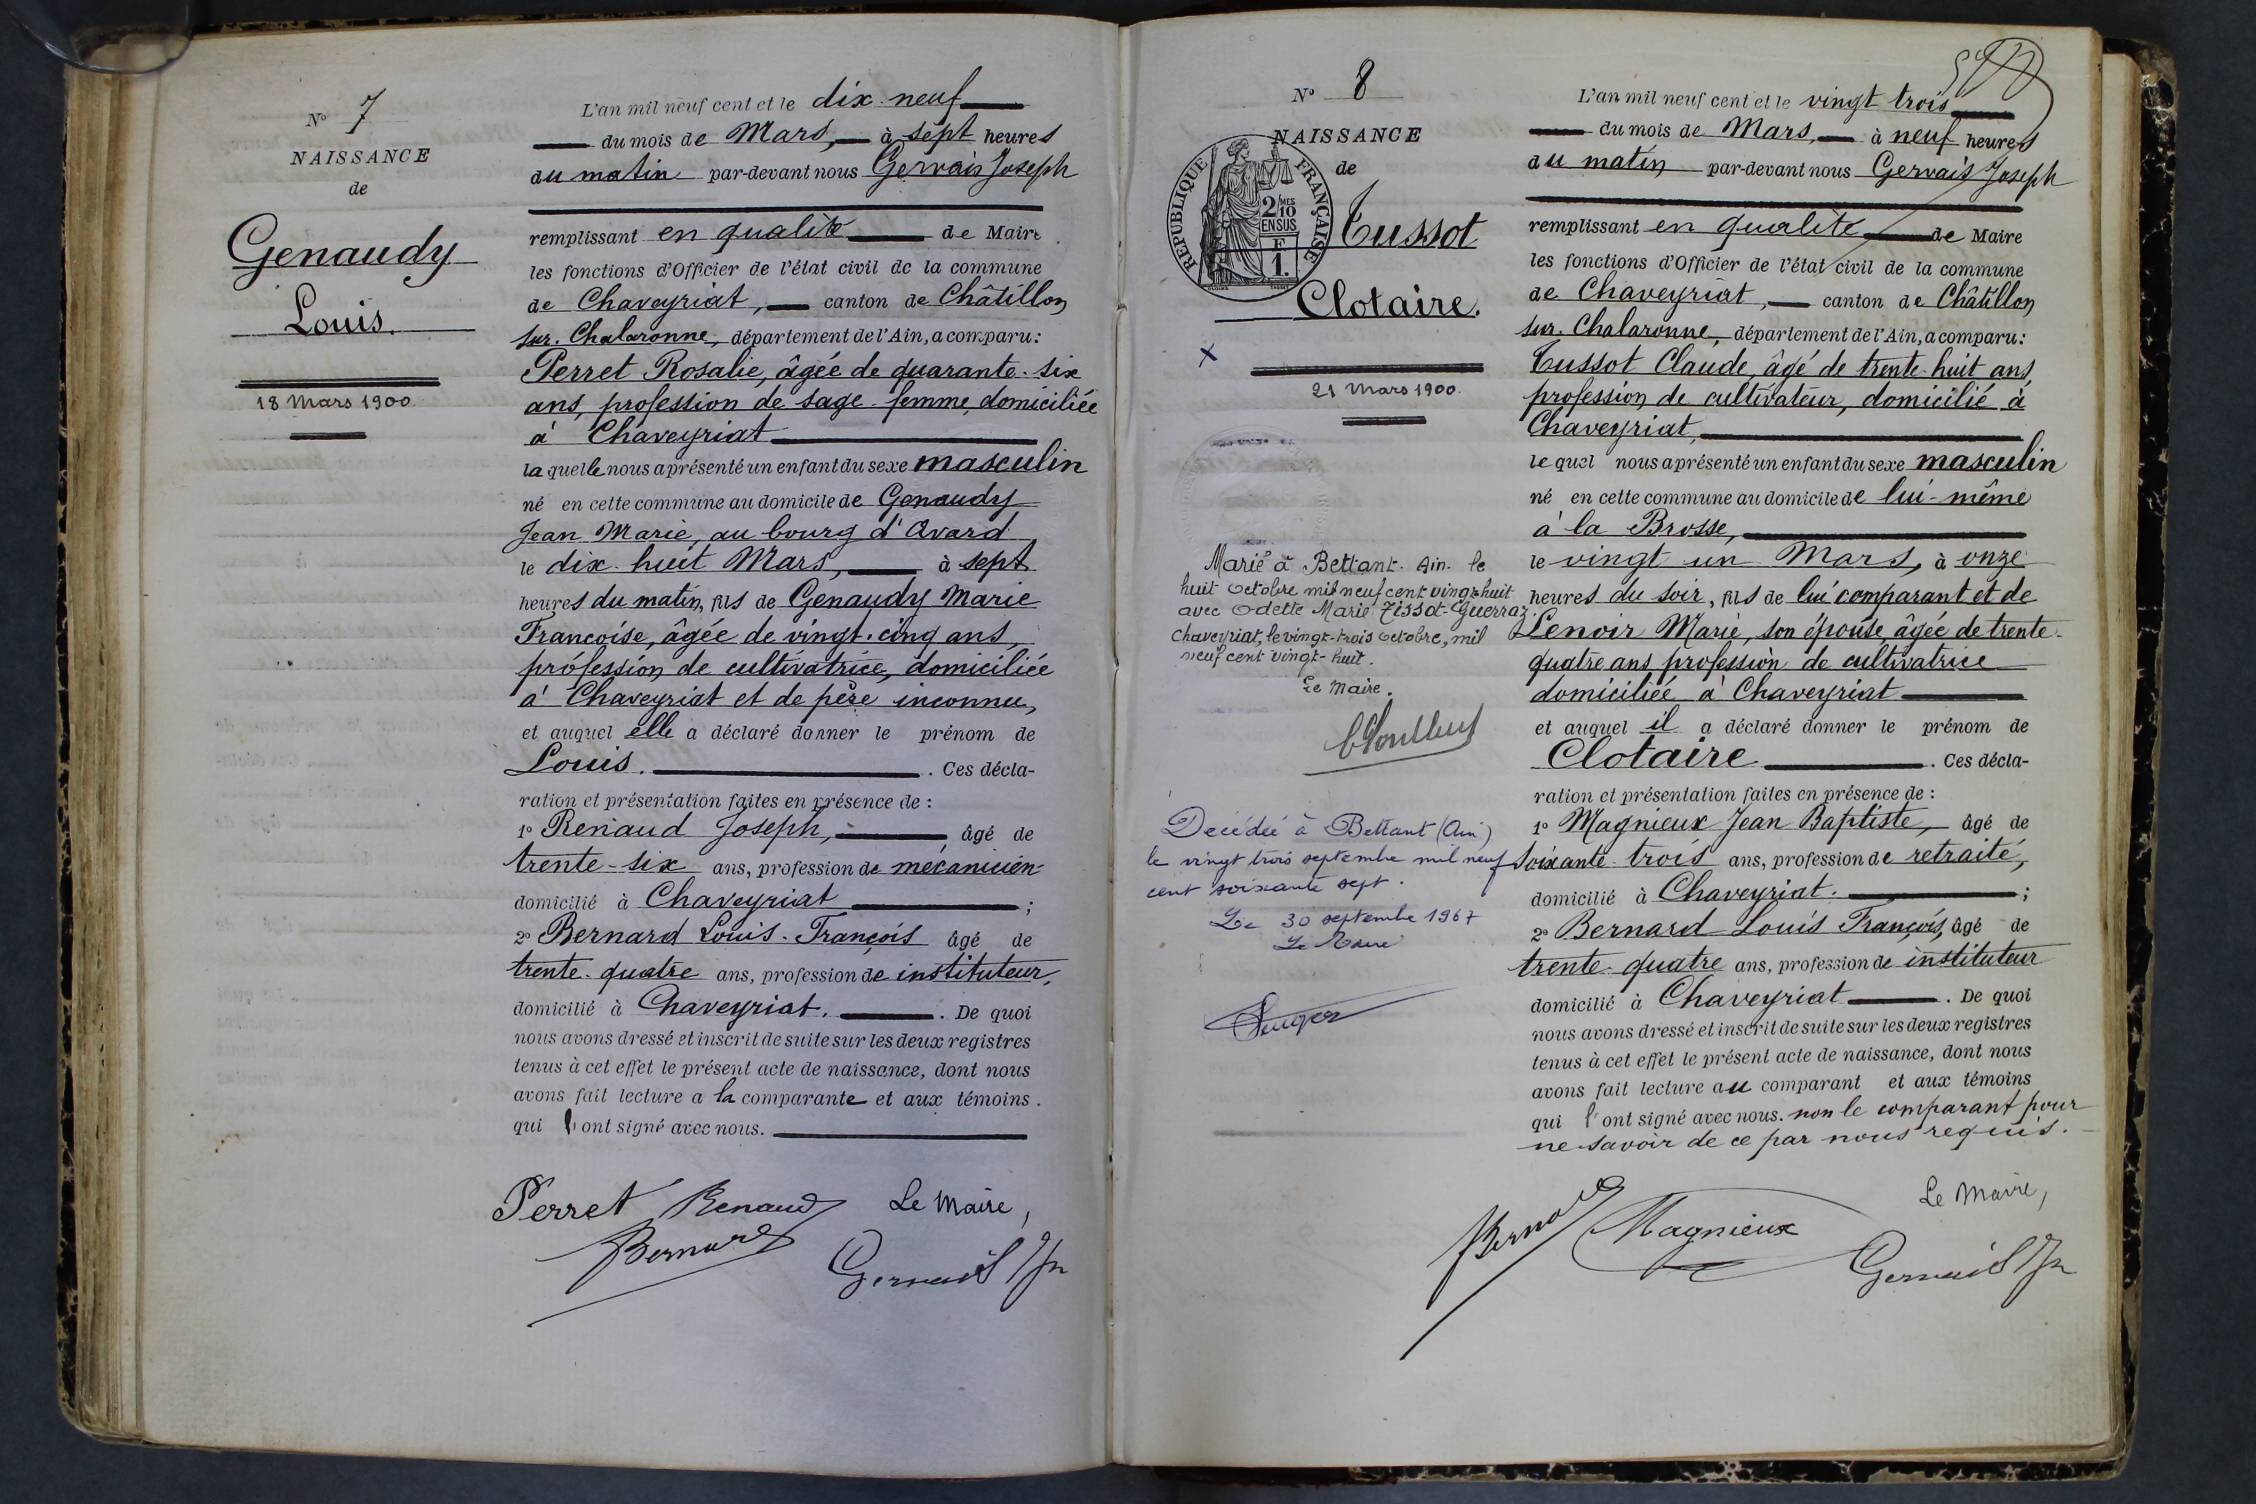 N° 7
NAISSANCE
de
Genaudy
Louis.
18 Mars 1900.
L'an mil neuf cent et le dix-neuf
du mois de Mars, à sept heures
du matin par-devant nous Gervais Joseph
remplissant en qualité de Maire
les fonctions d'Officier de l'état civil de la commune
de Chaveyriat, canton de Châtillon
sur-Chalaronne, département de l'Ain, a comparu:
Perret Rosalie, âgée de quarante-six
ans, profession de sage-femme, domiciliée
à Chaveyriat
laquelle nous a présenté un enfant du sexe masculin
né en cette commune au domicile de Genaudy
Jean Marie, au bourg d'Avard
le dix-huit Mars, à sept
heures du matin, fils de Genaudy Marie
Françoise, âgée de vingt-cinq ans,
profession de cultivatrice, domiciliée
à Chaveyriat et de père inconnu,
et auquel elle a déclaré donner le prénom de
Louis. . Ces décla-
ration et présentation faites en présence de :
1° Renaud Joseph, âgé de
trente-six ans, profession de mécanicien
domicilié à Chaveyriat ;
2° Bernard Louis-François âgé de
trente-quatre ans, profession de instituteur,
domicilié à Chaveyriat. . De quoi
nous avons dressé et inscrit de suite sur les deux registres
tenus à cet effet le présent acte de naissance, dont nous
avons fait lecture a la comparante et aux témoins.
qui l'ont signé avec nous.
Perret Renaud Le Maire,
Bernard Gervais Jh
N° 8
NAISSANCE
de
RÉPUBLIQUE FRANÇAISE
2/10 MES
EN SUS
F
1.
Tussot
Clotaire.
X
21 Mars 1900.
Marié à Bettant-Ain-le
huit octobre mil neuf cent vingt-huit
avec Odette Marie Tissot-Guerraz.
Chaveyriat, le vingt-trois octobre, mil
neuf cent vingt-huit.
Le Maire.
Décédée à Bettant (Ain)
le vingt trois septembre mil neuf
cent soixante sept.
Le 30 septembre 1967
Le Maire
L'an mil neuf cent et le vingt trois
du mois de Mars, à neuf heures
du matin par-devant nous Gervais Joseph
remplissant en qualité de Maire
les fonctions d'Officier de l'état civil de la commune
de Chaveyriat, canton de Châtillon
sur-Chalaronne, département de l'Ain, a comparu:
Tussot Claude, âgé de trente-huit ans,
profession de cultivateur, domicilié à
Chaveyriat,
lequel nous a présenté un enfant du sexe masculin
né en cette commune au domicile de lui-même
à la Brosse,
le vingt un Mars, à onze
heures du soir, fils de lui comparant et de
Lenoir Marie, son épouse, âgée de trente-
quatre ans, profession de cultivatrice
domiciliée à Chaveyriat
et auquel il a déclaré donner le prénom de
Clotaire . Ces décla-
ration et présentation faites en présence de :
1° Magnieux Jean Baptiste, âgé de
soixante-trois ans, profession de retraité,
domicilié à Chaveyriat. ;
2° Bernard Louis François, âgé de
trente-quatre ans, profession de instituteur
domicilié à Chaveyriat . De quoi
nous avons dressé et inscrit de suite sur les deux registres
tenus à cet effet le présent acte de naissance, dont nous
avons fait lecture au comparant et aux témoins
qui l'ont signé avec nous. non le comparant pour
ne savoir de ce par nous requis.
Bernard Magnieux Le Maire,
Gervais Jh